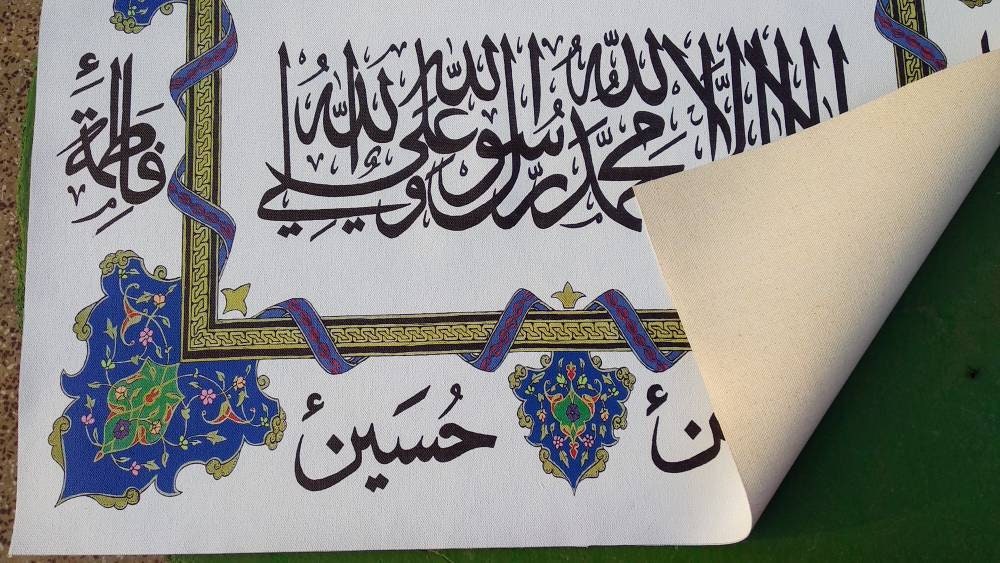 لا اله الا الله محمد رسول الله وعلي ولي الله
فاطمة
حسين